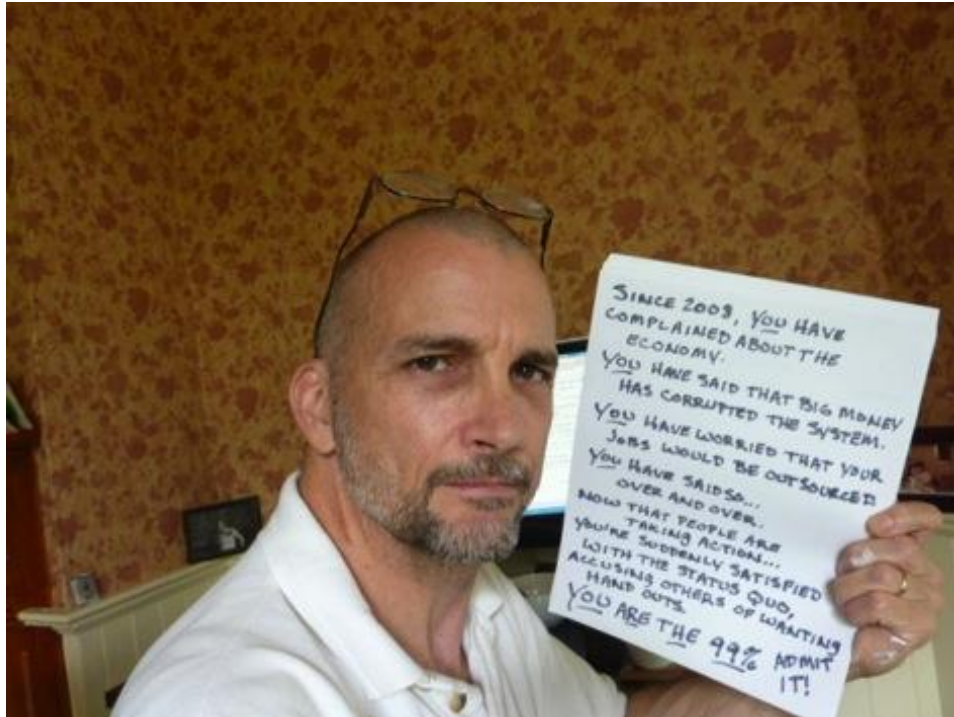 SINCE 2009, YOU HAVE
COMPLAINED ABOUT THE
ECONOMY.
YOU HAVE SAID THAT BIG MONEY
HAS CORRUPTED THE SYSTEM.
YOU HAVE WORRIED THAT YOUR
JOBS WOULD BE OUTSOURCED
YOU HAVE SAID SO...
OVER AND OVER.
NOW THAT PEOPLE ARE
TAKING ACTION...
YOU'RE SUDDENLY SATISFIED
WITH THE STATUS QUO,
ACCUSING OTHERS OF WANTING
HAND OUTS.
YOU ARE THE 99% ADMIT
IT!